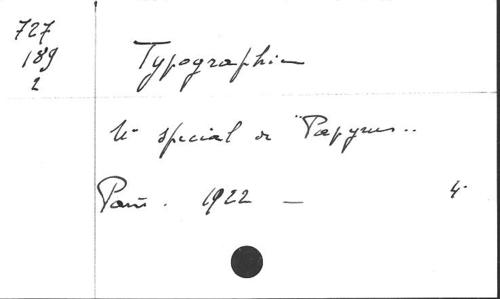 727
189
2
Typographie
No special de "Papyrus"
Paris. 1922 — 4o